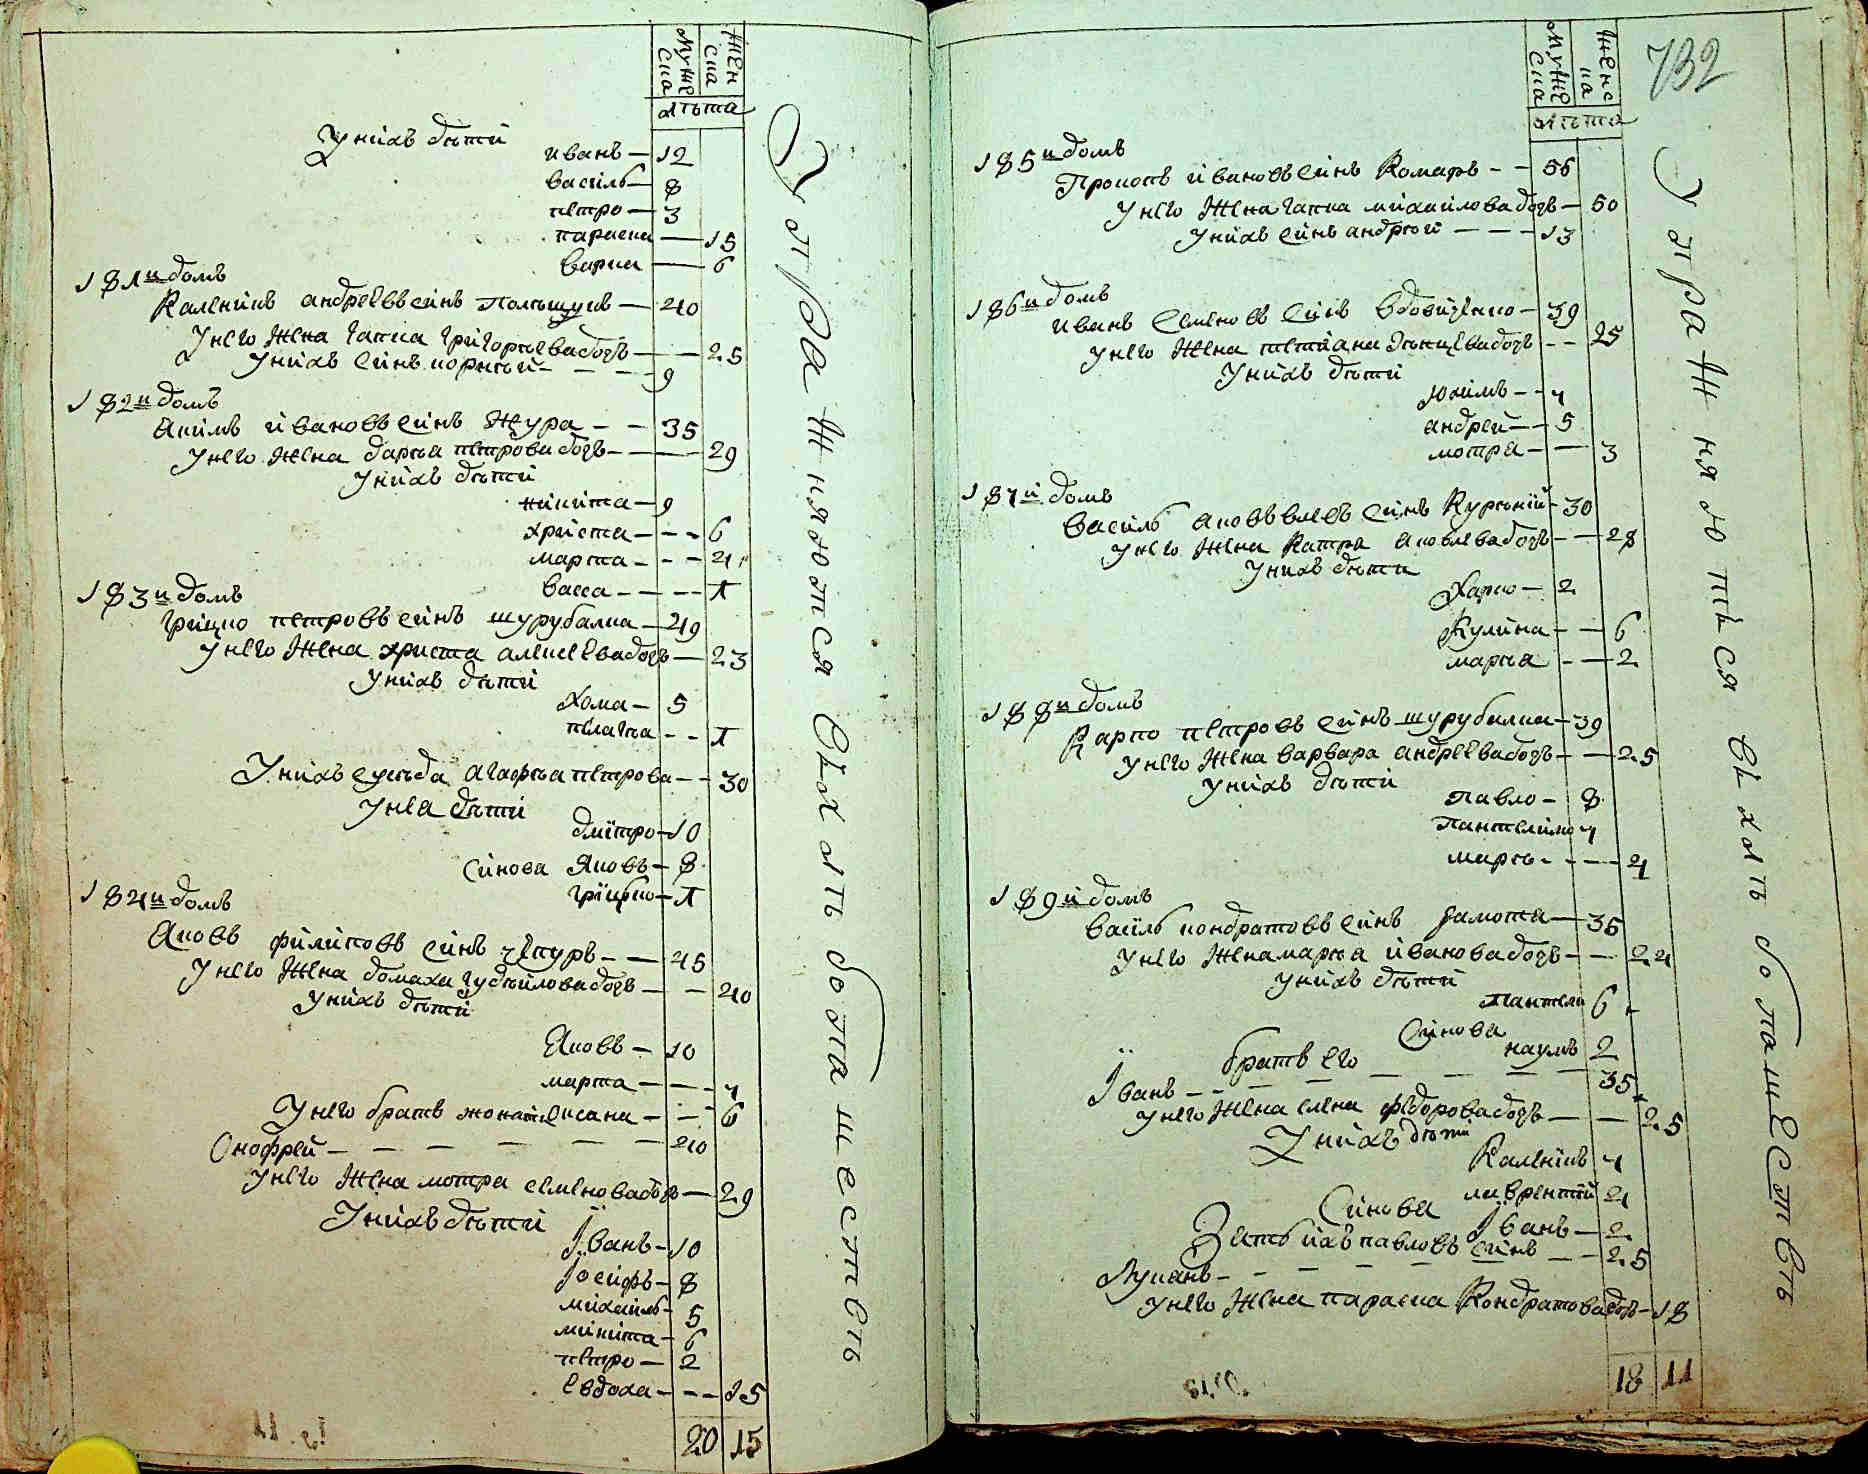 Муже
ска
Жен
ска
лѣта
У нихъ дѣти
иванъ — 12
василь — 8
петро — 3
параска — 15
варка — 6
181 и домъ
Каленикъ андреевъ синъ — 40
У него жена гапка григорьева дочъ — 25
У нихъ синъ корнѣй — 9
182 и домъ
Акимъ ивановъ синъ Жура — 35
У него жена дарья петрова дочъ — 29
У нихъ дѣти
никита — 9
христа — 6
марта — 4
васса — 1
183 и домъ
грицко петровъ синъ шурубалка — 49
У него жена христа алексеева дочъ — 23
У нихъ дѣти
хома — 5
пелагѣа — 1
У нихъ агафѣа петрова — 30
У неа дѣти
дмитро — 10
синова яковъ — 8
грицко — 1
184 и домъ
Яковъ филиповъ синъ чепуръ — 45
У него жена домаха дочъ — 40
У нихъ дѣти
Яковъ — 10
марта — 7
6
У него братъ
Онофрей — 40
У него жена мотра семенова дочъ — 29
У нихъ дѣти
Іванъ — 10
Іосифъ — 8
михаилъ — 5
микита — 6
петро — 2
евдоха — 15
20 15
У отражняются в ихъ лѣть до ба шествѣ
732
Муже
ска
Женс
ка
лѣта
185 и домъ
Прокопъ ивановъ синъ Комаръ — 56
У него жена гапка михаилова дочъ — 50
У нихъ синъ андрѣй — 13
186 и домъ
иванъ семеновъ синъ вдовиченко — 39
У него жена тетиана дочъ — 25
У нихъ дѣти
якимъ — 7
андрей — 5
мотра — 3
187 й домъ
василь яковлевъ синъ Курский — 30
У него жена Катра яковлева дочъ — 28
У нихъ дѣти
Харко — 2
Кулина — 6
марѣа — 2
188 и домъ
Карпо петровъ синъ шурубалка — 39
У него жена варвара андреева дочъ — 25
У нихъ дѣти
Павло — 8
Пантелимо 7
марѣ — 4
189 й домъ
василь кондратовъ синъ — 35
У него жена марѣа иванова дочъ — 24
У нихъ дѣти
Пантели 6
Синова
наумъ 2
братъ его
Іванъ — 35
У него жена елена федорова дочъ — 25
У нихъ дѣти
Каленикъ 7
лаврентий 4
Синова
Іванъ — 2
Зать ихъ павловъ синъ — 25
Лукянъ
У него жена параска Кондратова дочъ — 18
18 11